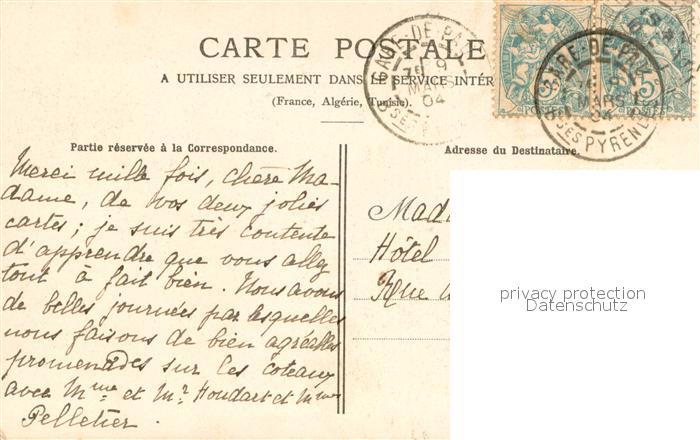 CARTE POSTALE
A UTILISER SEULEMENT DANS LE SERVICE INTÉR
(France, Algérie, Tunisie).
GARE-DE-PA
9
MARS
04
GARE-DE-PAU
MARS
04
SES PYRENE
Partie réservée à la Correspondance.
Merci mille fois, chère Ma-
dame, de vos deux jolies
cartes; je suis très contente
d'apprendre que vous allez
tout à fait bien. Nous avons
de belles journées par lesquelles
nous faisons de bien agréables
promenades sur les coteaux
avec Mme et Mr Houdart et Mme
Pelletier.
Adresse du Destinataire.
Mad
Hôtel
Rue
privacy protection
Datenschutz